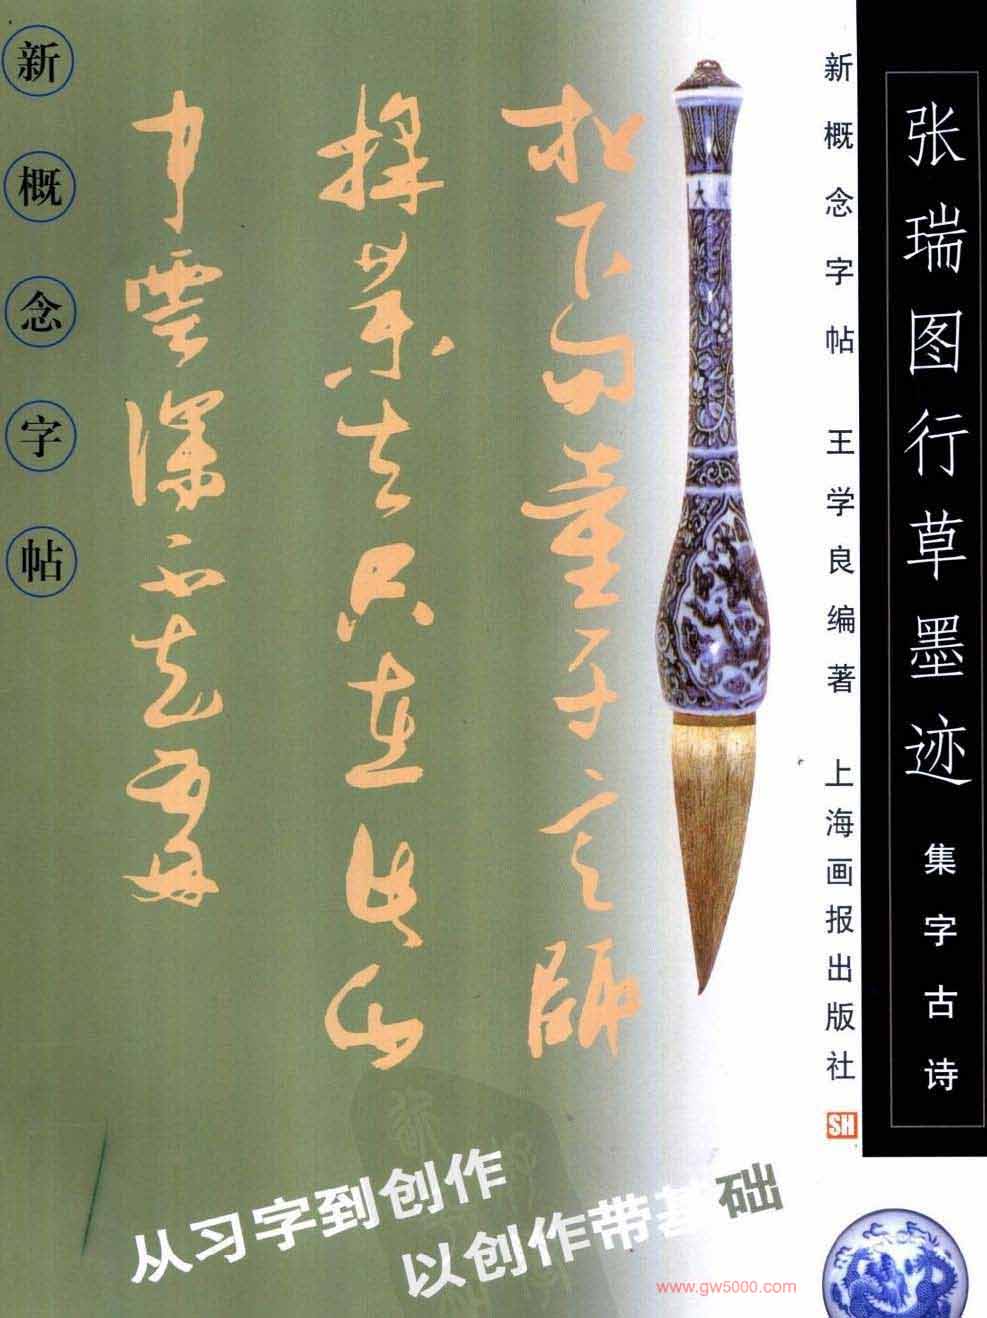 张瑞图行草墨迹 集字古诗
新概念字帖 王学良编著 上海画报出版社
SH
松下問童子言師
採藥去只在此山
中雲深不知處
新概念字帖
从习字到创作
以创作带基础
www.gw5000.com